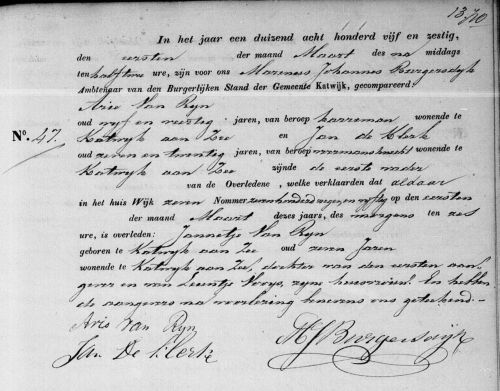 1370
In het jaar een duizend acht honderd vijf en zestig,
den eersten der maand Maart des na middags
ten half twee ure, zijn voor ons Marinus Johannes Burgersdyk
Ambtenaar van den Burgerlijken Stand der Gemeente Katwijk, gecompareerd
Arie Van Ryn
oud vyf en veertig jaren, van beroep haareman wonende te
No. 47. Katwyk aan Zee en Jan de Klerk
oud zeven en twintig jaren, van beroep wonende te
Katwyk aan Zee zijnde de eerste vader
van de Overledene, welke verklaarden dat aldaar
in het huis Wijk zeven Nommer zevenhonderd zeven en vyftig op den eersten
der maand Maart dezes jaars, des morgens ten zes
ure, is overleden: Jannetje Van Ryn
geboren te Katwyk aan Zee oud zeven Jaren
wonende te Katwyk aan Zee, dochter van den eersten aan-
gever en van Leentje zyne huisvrouw. En hebben
de aangevers na voorlezing benevens ons geteekend.
Aris van Ryn
Jan De Klerk
MJBurgersdijk